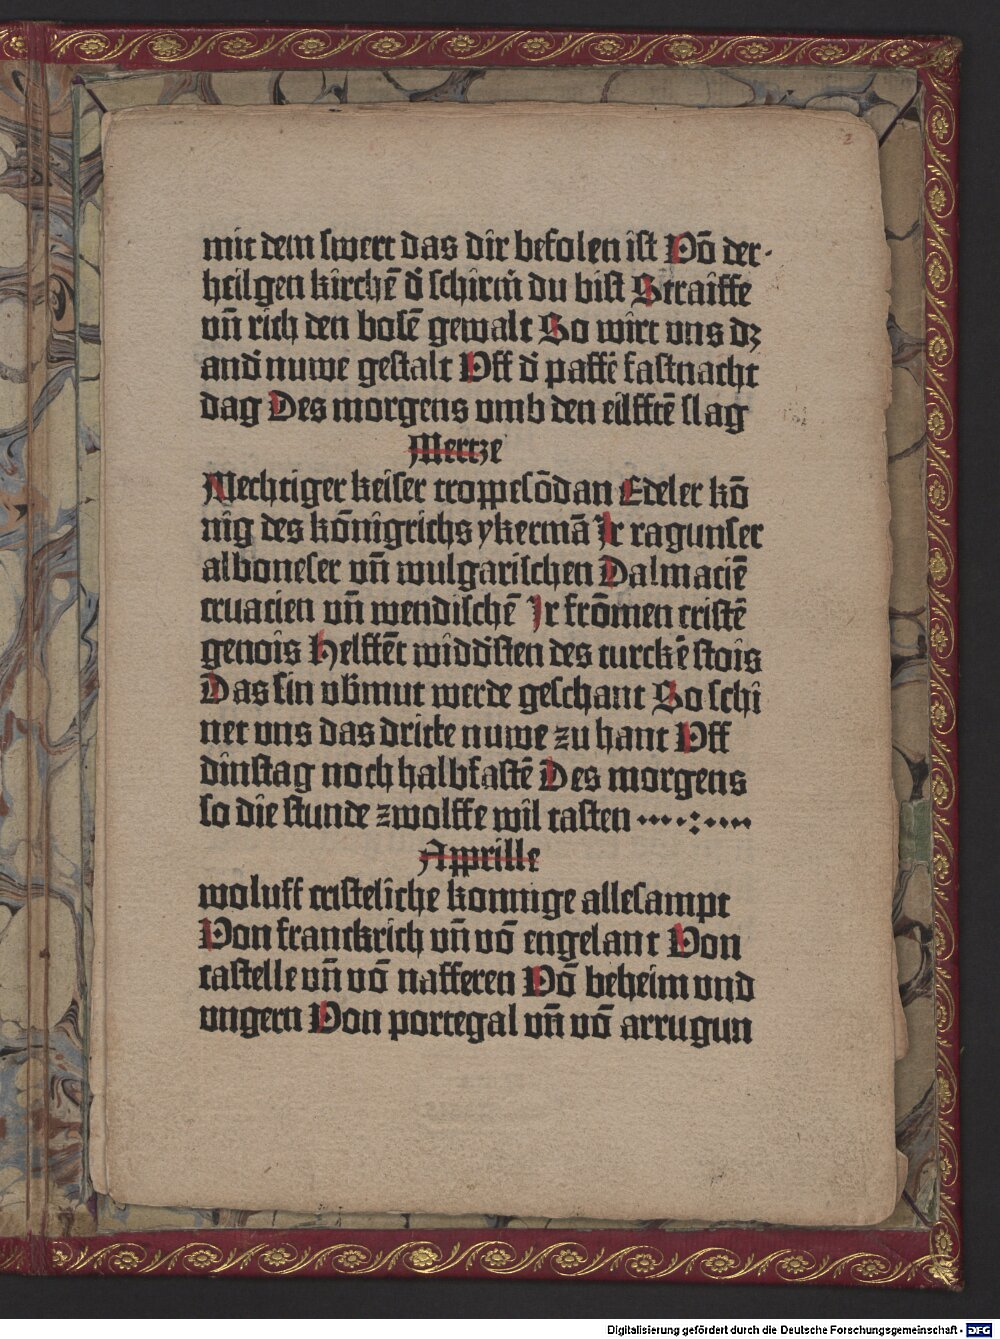 2
mit dem swert das dir befolen ist Võ der
heilgen kirchē d̕ schirm̄ du bist Straiffe
vñ rich den bosē gewalt So wirt vns dz
and̕ nuwe gestalt Vff d̕ paffē fastnacht
dag Des morgens vmb den eilfftē slag
Mertze
Mechtiger keiser troppesõdan Edeler kõ
nig des kõnigrichs ykermã Ir ragunser
alboneser vñ wulgarischen Dalmaciē
cruacien vñ wendischē Ir frõmen cristē
genois Helffēt widd̕sten des turckē stois
Das sin vb̕mut werde geschant So schi
net vns das dritte nuwe zu hant Vff
dinstag noch halbfastē Des morgens
so die stunde zwolffe wil tasten ····:····
Apprille
woluff cristeliche konnige allesampt
Von franckrich vñ võ engelant Von
castelle vñ võ nafferen Võ beheim vnd
vngern Von portegal vñ võ arrugun
Digitalisierung gefördert durch die Deutsche Forschungsgemeinschaft - DFG